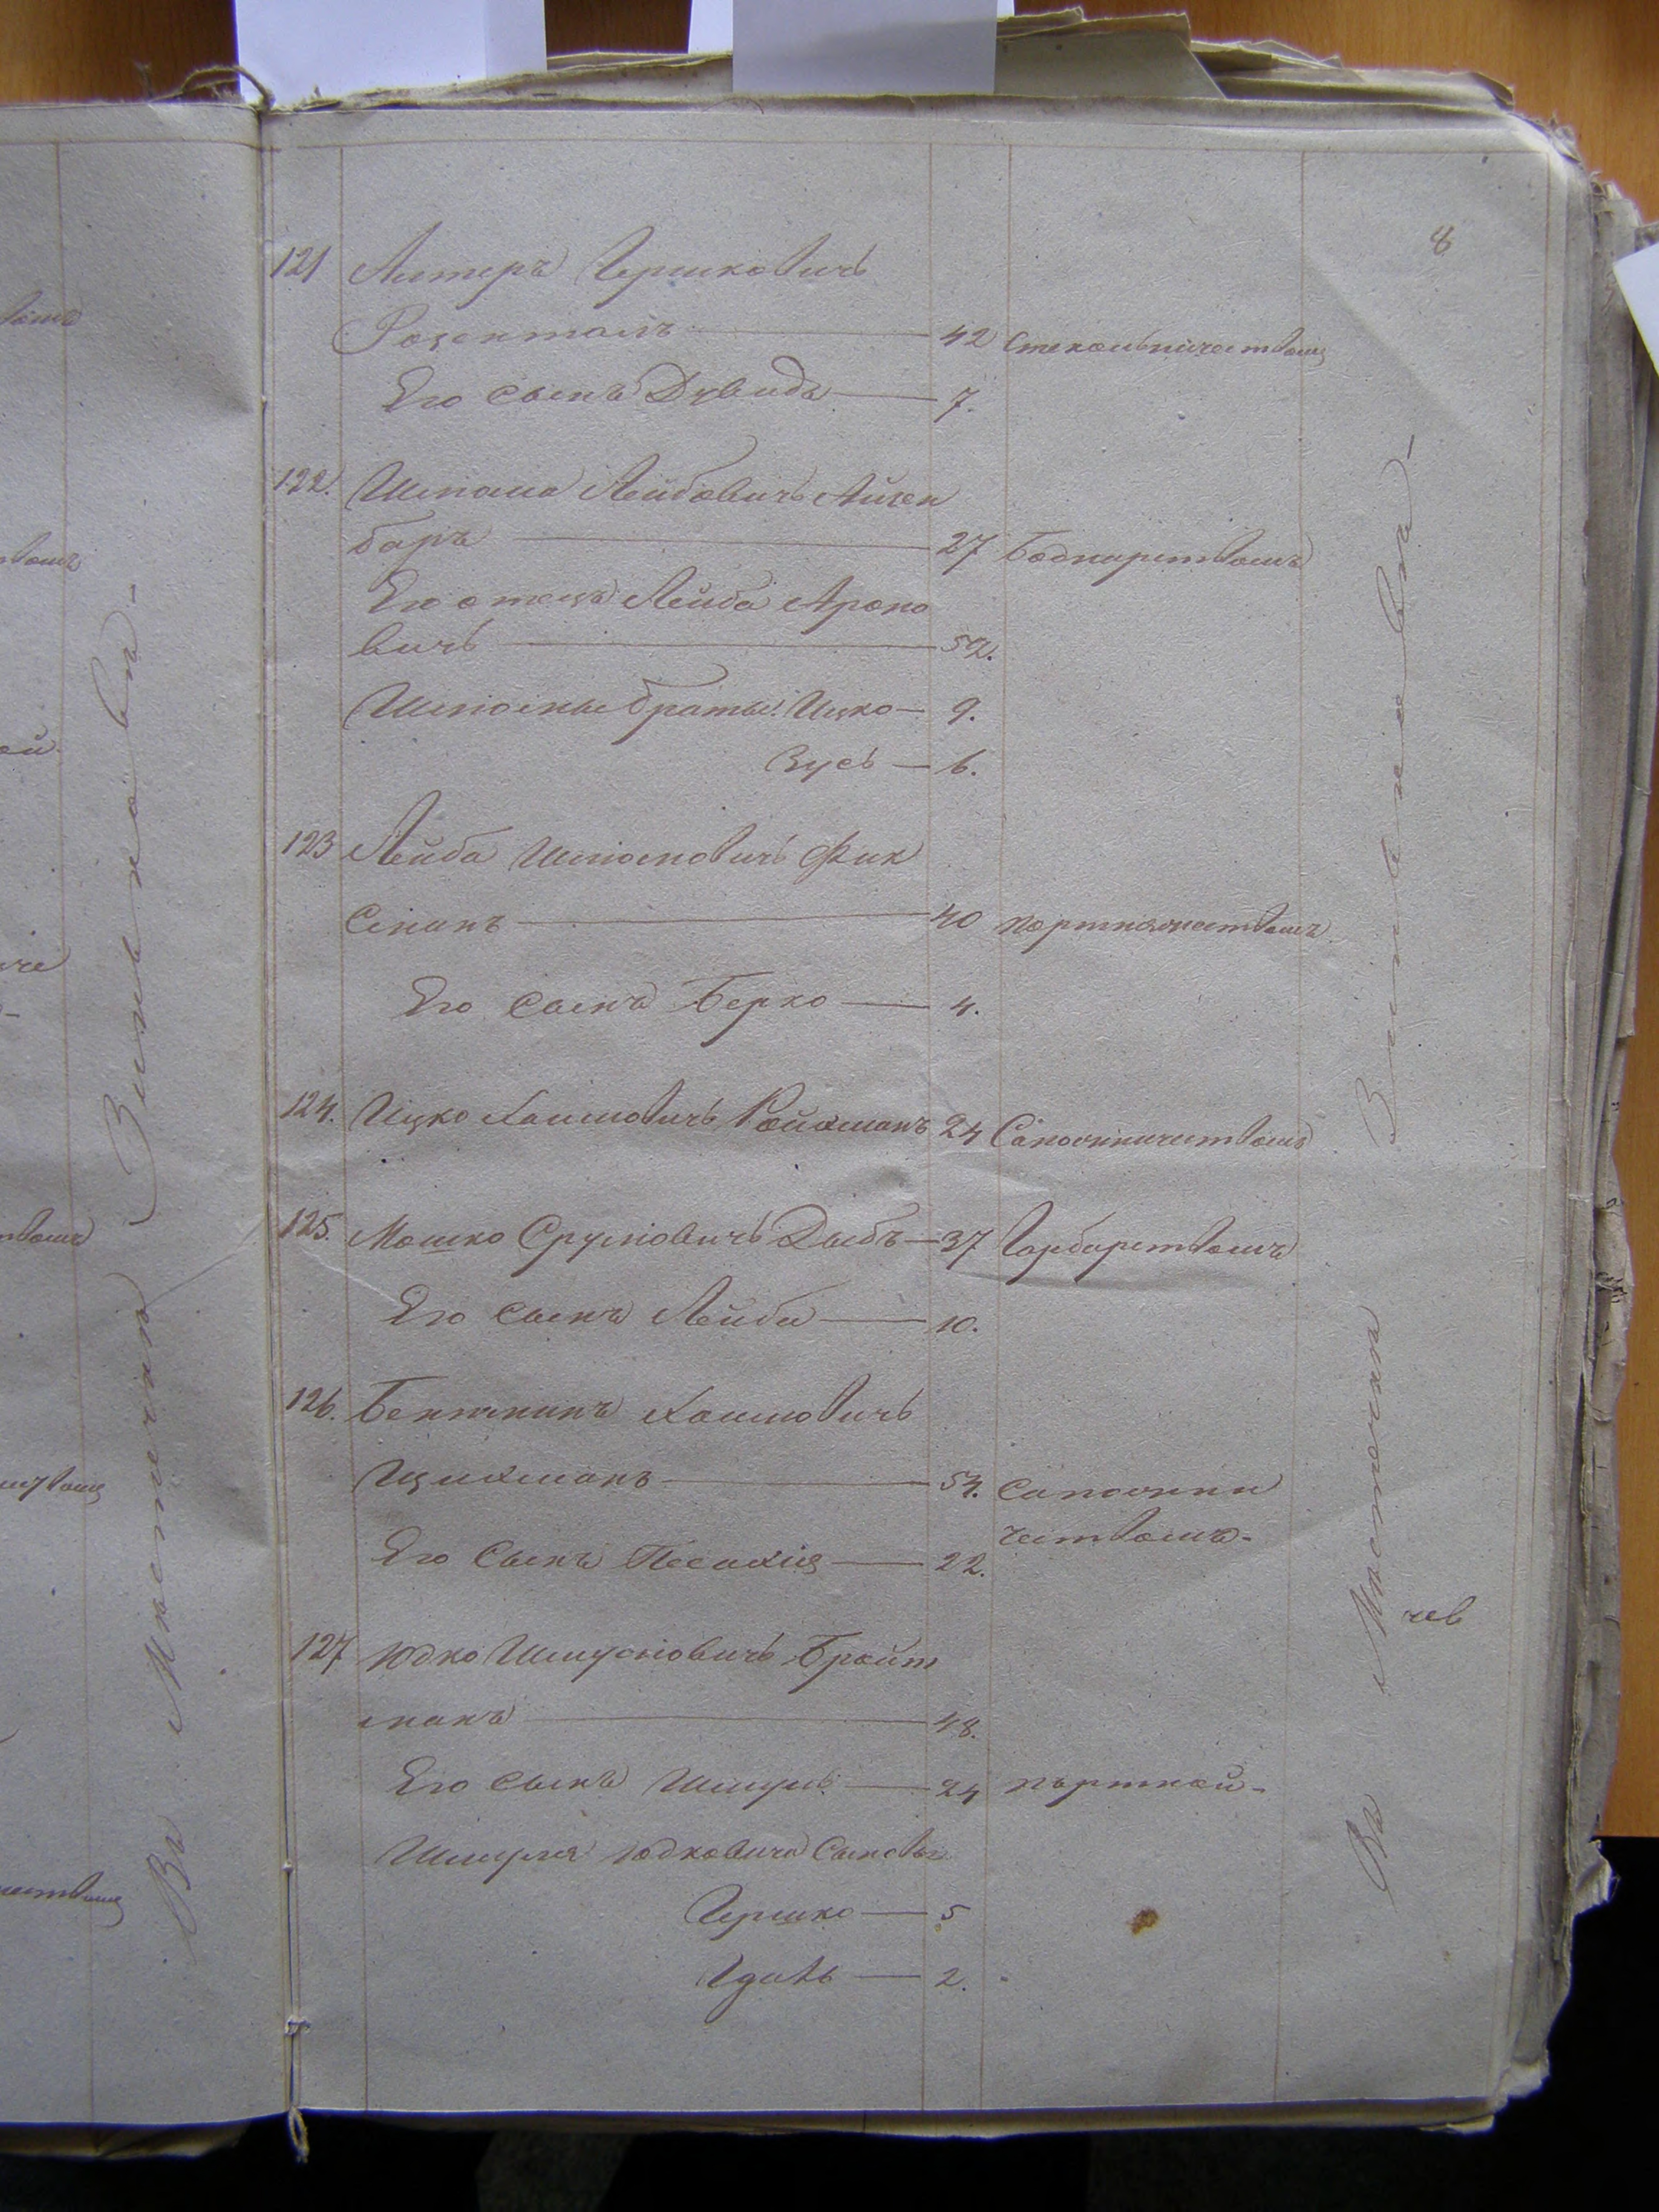 8
121 Литеръ Гершковичь
Розенталь 42 Стекольничествомъ
Его сынъ Дувидъ 7.
122. Шлиома Лейбовичь Айзен
баръ 27 Боднарствомъ
Его отецъ Лейба Ароно
вичь 52.
Шлиомы братья: Ицко 9.
Зусь 6.
123 Лейба Шлиомовичь Фик
сманъ 40 портняжествомъ
Его сынъ Берко 4.
124. Ицко Хаимовичь Ройхманъ 24 Сапожничествомъ
125. Мошко Срулиовичь Дыбъ 37 Гарбарствомъ
Его сынъ Лейба 10.
126. Беняминъ Хаимовичь
Цихманъ 54. Сапожни
чествомъ
Его Сынъ Песахия 22.
127 Юдко Шмулиовичь Бройт
манъ 48.
Его сынъ Шмуль 24 портной
Шмуля Юдковича Сыновья
Гершко 5
2.
Въ Местечки Зинькове
Въ Местечки Зинькове